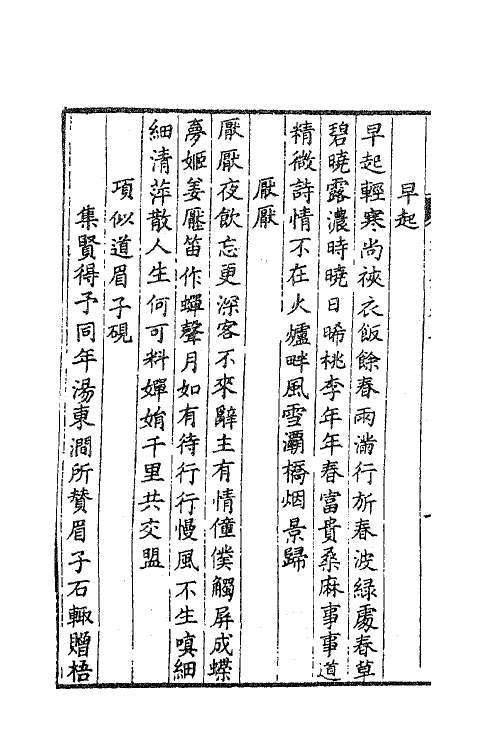 早起
早起輕寒尚裌衣飯餘春雨滿行斾春波綠處春草
碧曉露濃時曉日晞桃李年年春富貴桑麻事事道
精微詩情不在火爐畔風雪灞橋烟景歸
厭厭
厭厭夜飲忘更深客不來辭主有情僮僕觸屏成蝶
夢姬姜壓笛作蟬聲月如有待行行慢風不生嗔細
細清萍散人生何可料嬋娟千里共交盟
項似道眉子硯
集賢得予同年湯東澗所贊眉子石輙贈梧